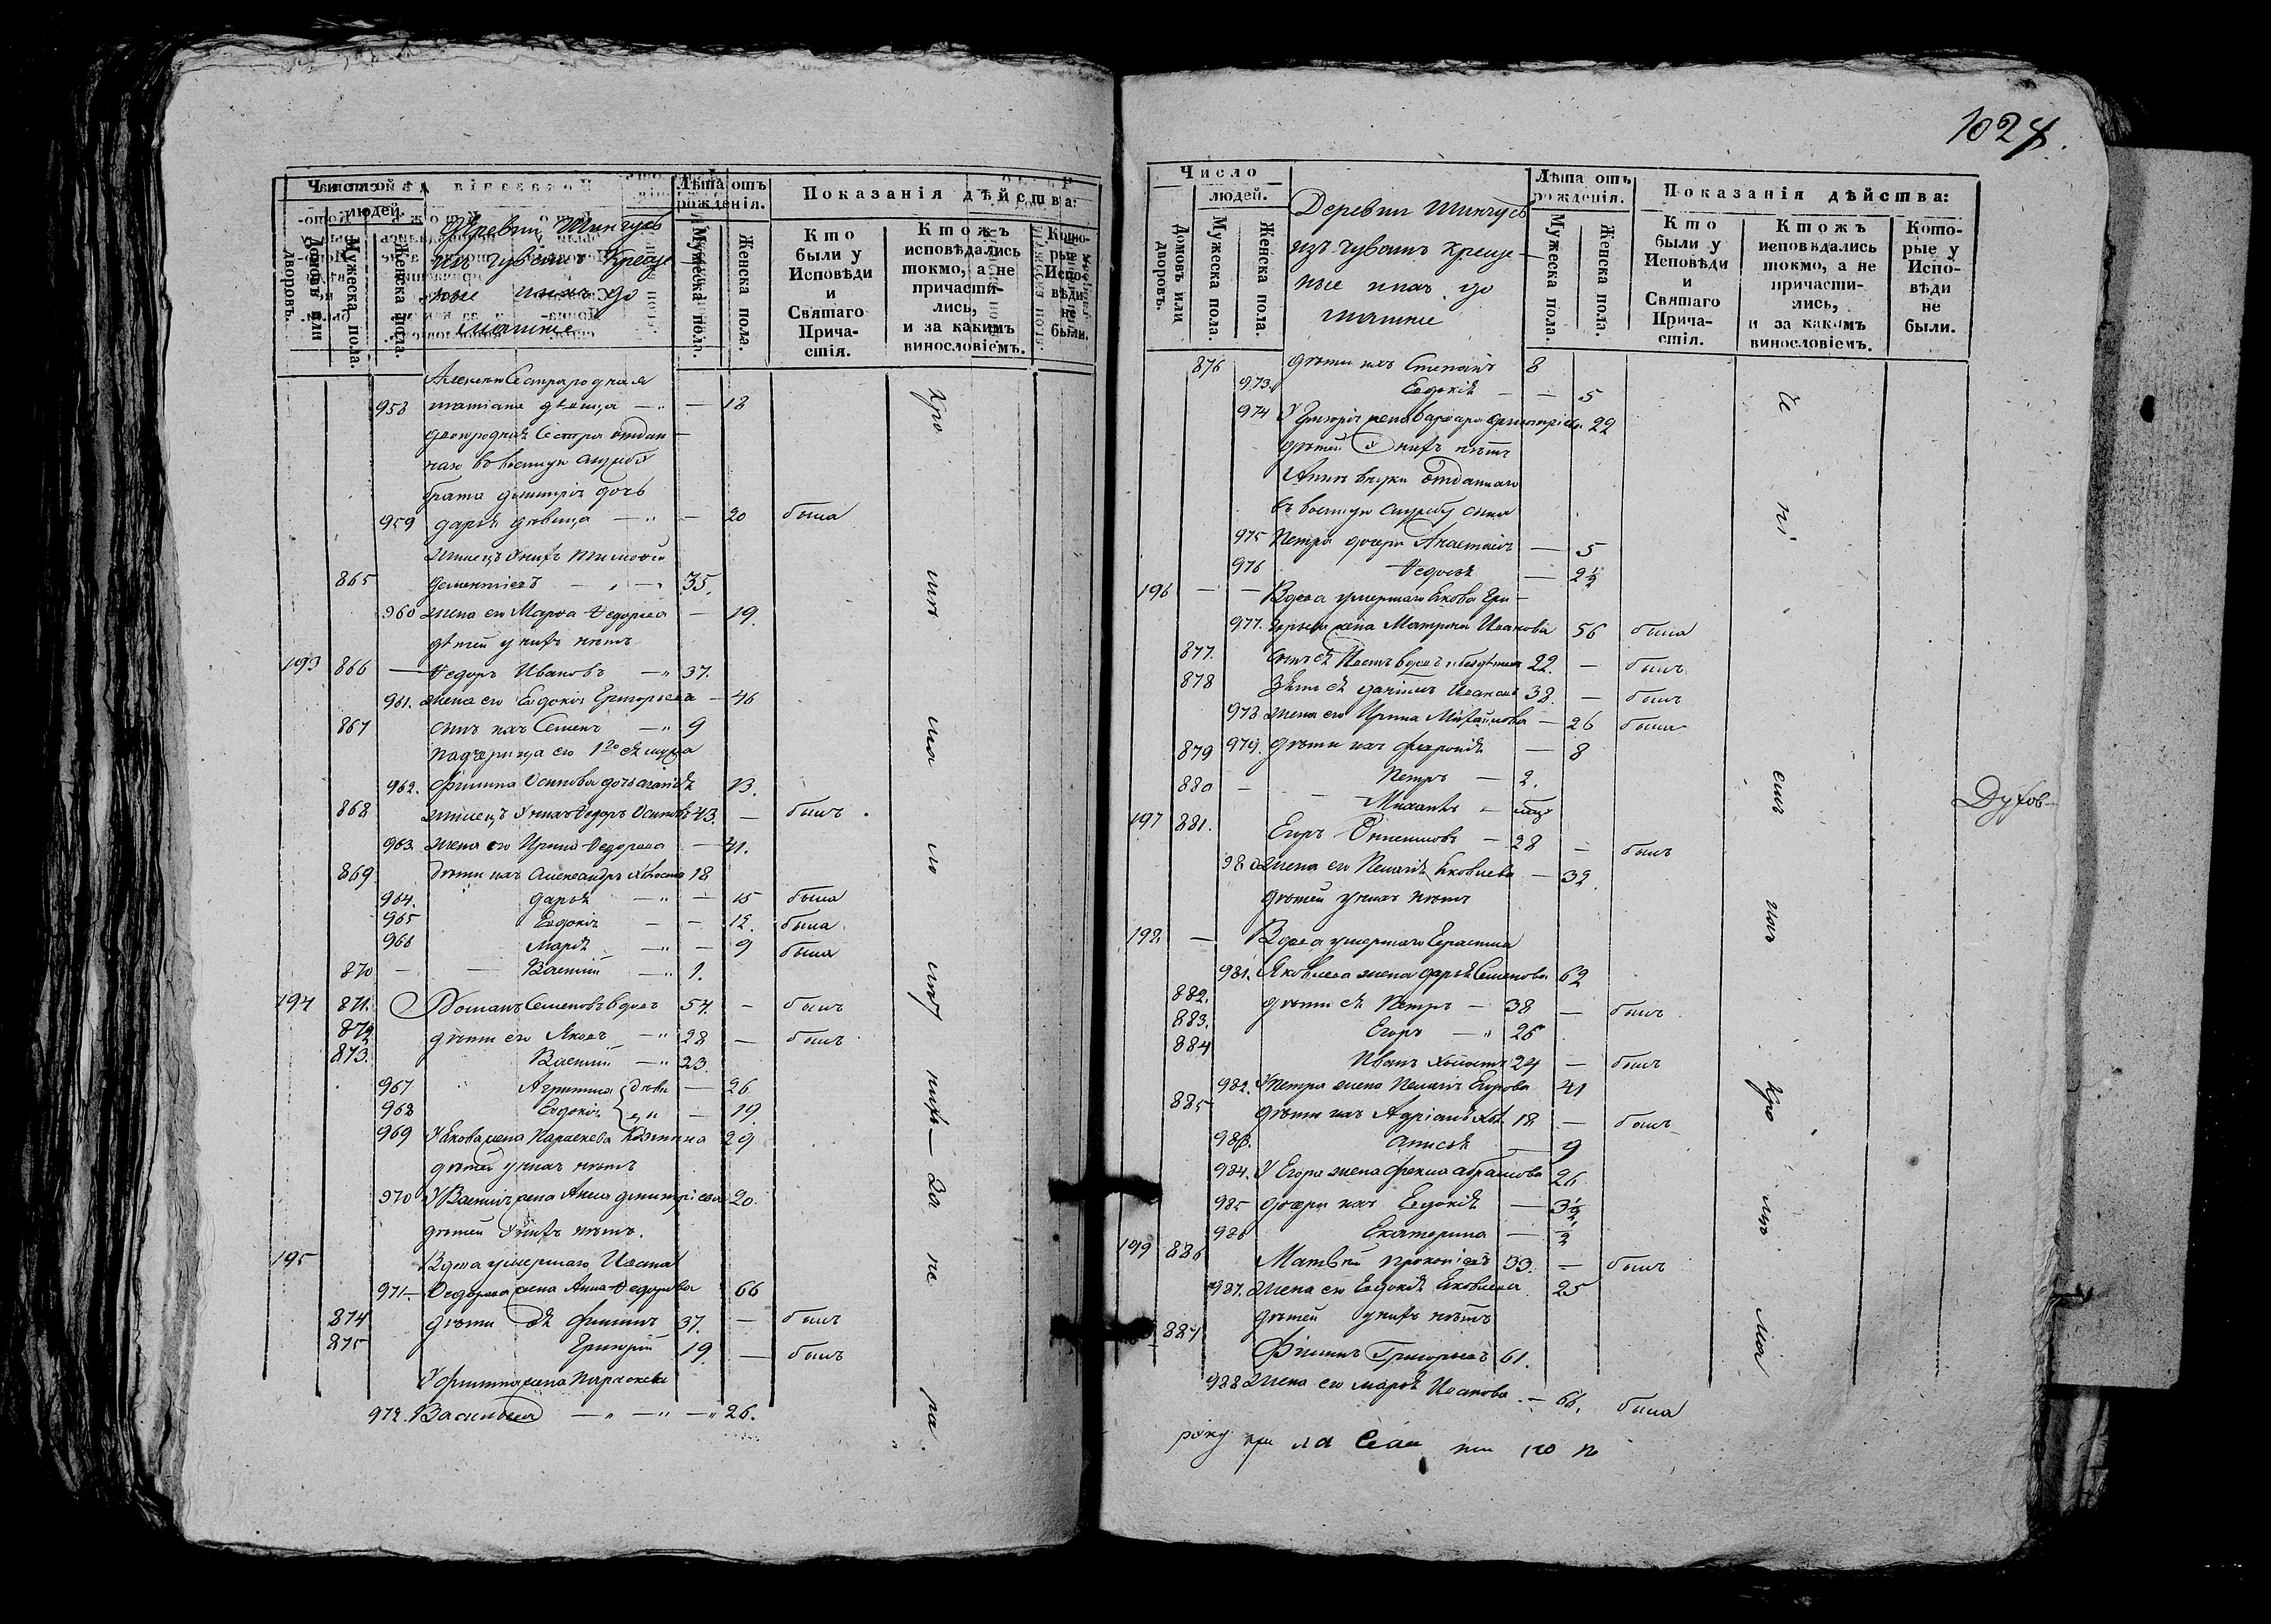 Число
людей.
Домовъ или дворовъ.
Мужеска пола.
Женска пола.
Деревни Шингусъ
изъ чувашъ креще-
ные ихъ до
машніе
Лѣта отъ рожденія.
Мужеска пола.
Женска пола.
Показанія дѣйства:
Кто были у Исповѣди и Святаго Причастія.
Ктожъ исповѣдались токмо, а не причастились, и за какимъ винословіемъ.
Которые у Исповѣди не были.
сестра родная
958 дѣвица — 18
двоюродная сестра отдан
наго въ военную службу
брата Димитрія дочь
959 Дарья дѣвица — 20 была
у нихъ Тимофей
865 Дементіевъ — 35.
960 жена его Марѳа Ѳедорова — 19.
дѣтей у нихъ нѣтъ
193 866 — Ѳедоръ Ивановъ — 37.
961. жена его Евдокія Григорьева — 46
867 сынъ ихъ Семенъ — 9
падчерица его 1го ея мужа
962. Осипова дочь 13.
868 у нихъ Ѳедоръ Осиповъ 43. — былъ
963. жена его Ирина Ѳедорова — 41.
869 дѣти ихъ Александръ холостъ 18
964. Дарья — 15 была
965 Евдокія — 12. была
966 Марья — 9 была
870 — — Василій — 1.
194 871. Романъ Семеновъ вдовъ 54. — былъ
872 дѣти его Яковъ — 28 — былъ
873. Василій — 23.
967 Агрипина дѣвки — 26
968 Евдокія — 19.
969 У Якова жена Параскева 29
дѣтей у нихъ нѣтъ
970 У Василія жена Анна Димитріева 20.
дѣтей у нихъ нѣтъ.
195 Вдова умершаго Ивана
971. Ѳедорова жена Анна Ѳедорова 66
874 дѣти ея Филиппъ 37. — былъ
875 Григорій 19. — былъ
У Филиппа жена Параскева
972. Васильева — 26.
1024.
Число
людей.
Домовъ или дворовъ.
Мужеска пола.
Женска пола.
Деревни Шингусъ
изъ чувашъ креще-
ные ихъ до
машніе
Лѣта отъ рожденія.
Мужеска пола.
Женска пола.
Показанія дѣйства:
Кто были у Исповѣди и Святаго Причастія.
Ктожъ исповѣдались токмо, а не причастились, и за какимъ винословіемъ.
Которые у Исповѣди не были.
876 дѣти ихъ Степанъ 8
973. Евдокія — 5
974 У Григорія жена Варвара Димитріева 22
дѣтей у нихъ нѣтъ
Анны внуки отданнаго
въ военную службу сына
975 Петра дочери Анастасія — 5
976 Ѳедосья — 2½
196 — — Вдова умершаго Якова Гри-
977. жена Матрона Иванова 56 была
877. сынъ ея вдовъ и бездѣтенъ 22. — былъ
878 Зять ея Данилъ Ивановъ 38. — былъ
978 жена его Ирина Михайлова — 26 была
879 979. дѣти ихъ — 8
880 — Петръ — 2.
— Михаилъ —
197 881. Егоръ — 28 — былъ
980 жена его Пелагія Яковлева — 32
дѣтей у нихъ нѣтъ
192. — Вдова умершаго
981. Яковлева жена Дарья Семенова 62
882. дѣти ея Петръ — 38 — былъ
883. Егоръ — 26
884 Иванъ холостъ 24 — былъ
982. У Петра жена Пелагія Егорова 41
885 дѣти ихъ Адріанъ хол. 18 — былъ
983. Анисья — 9
984. У Егора жена Фекла Абрамова 26
985 дочери ихъ Евдокія — 3½.
986 Екатерина — ½
199 886 Матвѣй Прокопіевъ 33. — былъ
987. жена его Евдокія Яковлева 25
дѣтей у нихъ нѣтъ
887 Филипъ Григорьевъ 61.
988 жена его Марья Иванова. — 66. была
Духов-